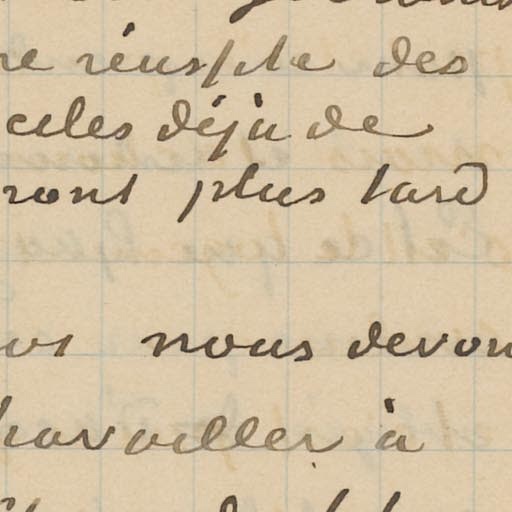 re réussite des
celes déjà de
ront plus tard
nous devon
travailler à